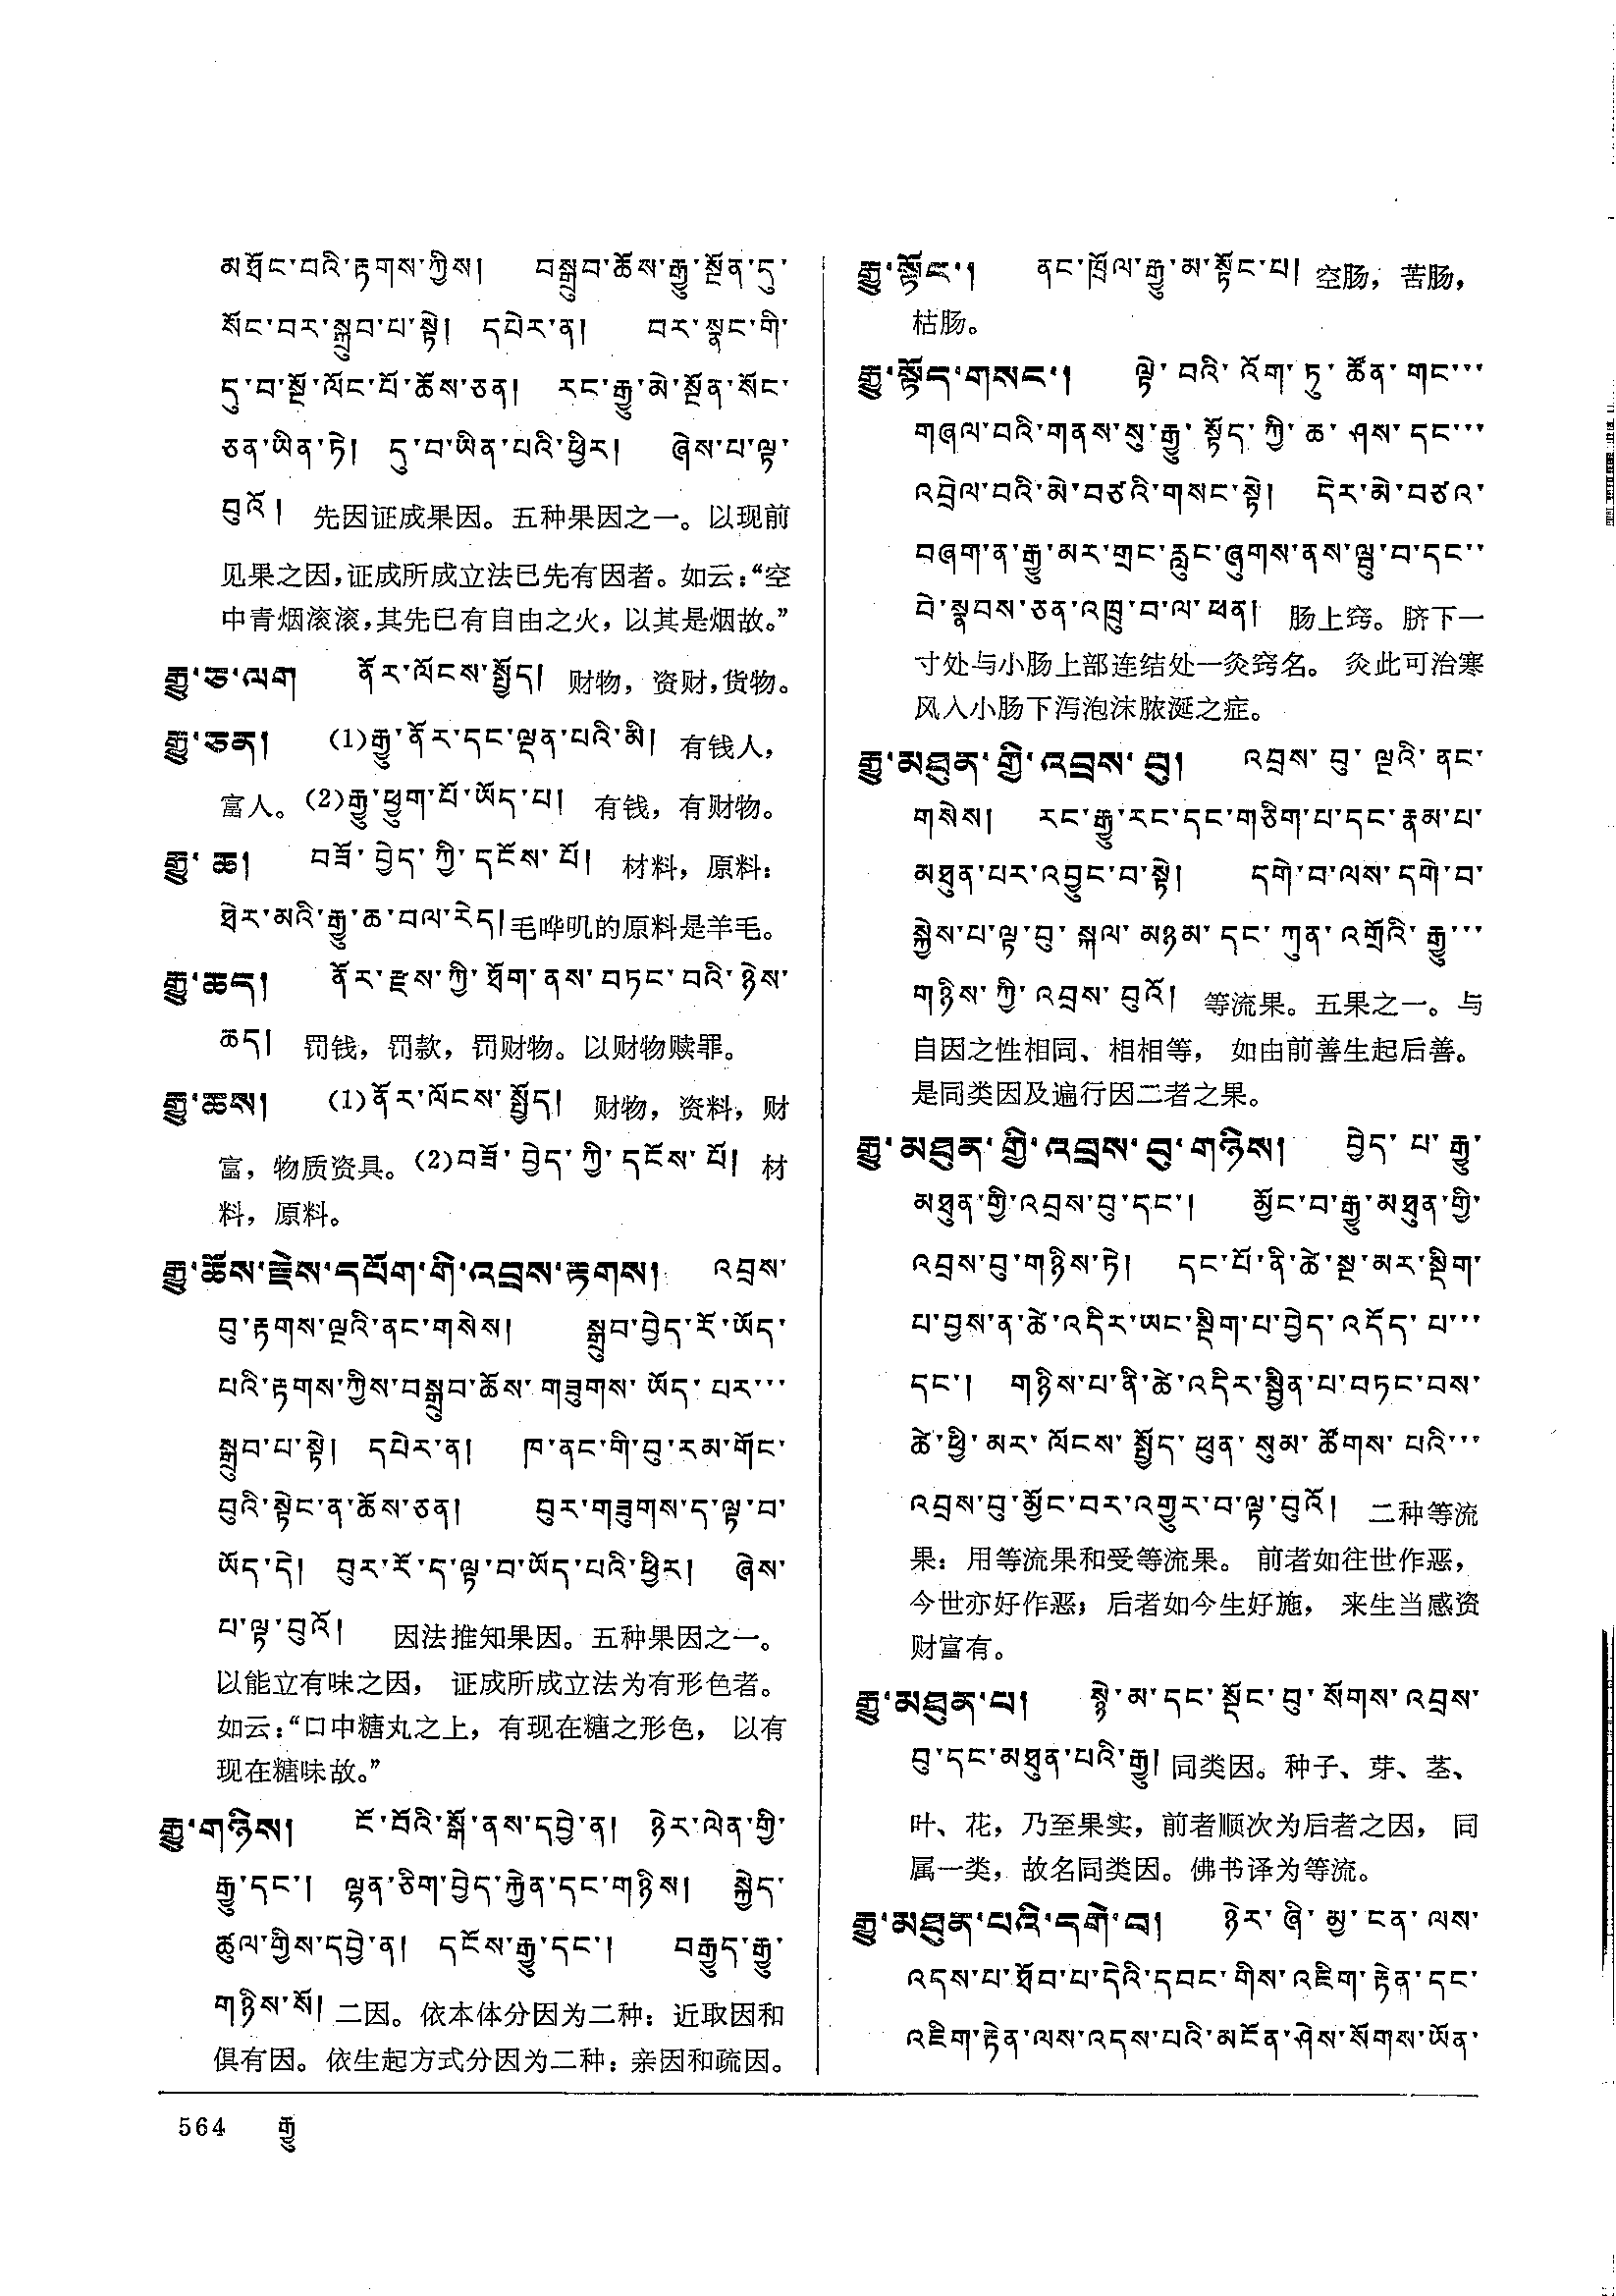 མཐོང་བའི་རྟགས་ཀྱིས། བསྒྲུབ་ཆོས་རྒྱུ་སྔོན་དུ་
སོང་བར་སྒྲུབ་པ་སྟེ། དཔེར་ན། བར་སྣང་གི་
དུ་བ་སྔོ་ལོང་པོ་ཆོས་ཅན། རང་རྒྱུ་མེ་སྔོན་སོང་
ཅན་ཡིན་ཏེ། དུ་བ་ཡིན་པའི་ཕྱིར། ཞེས་པ་ལྟ་
བུའོ། 先因证成果因。五种果因之一。以现前
见果之因,证成所成立法已先有因者。如云:“空
中青烟滚滚,其先已有自由之火，以其是烟故。”
རྒྱུ་ཅ་ལག ནོར་ལོངས་སྤྱོད། 财物，资财,货物。
རྒྱུ་ཅན། (1)རྒྱུ་ནོར་དང་ལྡན་པའི་མི། 有钱人，
富人。(2)རྒྱུ་ཕྱུག་པོ་ཡོད་པ། 有钱，有财物。
རྒྱུ་ཆ། བཟོ་བྱེད་ཀྱི་དངོས་པོ། 材料，原料:
ཐེར་མའི་རྒྱུ་ཆ་བལ་རེད།毛哗叽的原料是羊毛。
རྒྱུ་ཆད། ནོར་རྫས་ཀྱི་ཐོག་ནས་བཏང་བའི་ཉེས་
ཆད། 罚钱，罚款，罚财物。以财物赎罪。
རྒྱུ་ཆས། (1)ནོར་ལོངས་སྤྱོད། 财物，资料，财
富，物质资具。(2)བཟོ་བྱེད་ཀྱི་དངོས་པོ། 材
料，原料。
རྒྱུ་ཆོས་རྗེས་དཔོག་གི་འབྲས་རྟགས། འབྲས་
བུ་རྟགས་ལྔའི་ནང་གསེས། སྒྲུབ་བྱེད་རོ་ཡོད་
པའི་རྟགས་ཀྱིས་བསྒྲུབ་ཆོས་གཟུགས་ཡོད་པར་་་
སྒྲུབ་པ་སྟེ། དཔེར་ན། ཁ་ནང་གི་བུ་རམ་གོང་
བུའི་སྟེང་ན་ཆོས་ཅན། བུར་གཟུགས་ད་ལྟ་བ་
ཡོད་དེ། བུར་རོ་ད་ལྟ་བ་ཡོད་པའི་ཕྱིར། ཞེས་
པ་ལྟ་བུའོ། 因法推知果因。五种果因之一。
以能立有味之因， 证成所成立法为有形色者。
如云:“口中糖丸之上，有现在糖之形色， 以有
现在糖味故。”
རྒྱུ་གཉིས། ངོ་བོའི་སྒོ་ནས་དབྱེ་ན། ཉེར་ལེན་གྱི་
རྒྱུ་དང་། ལྷན་ཅིག་བྱེད་རྐྱེན་དང་གཉིས། སྐྱེད་
ཚུལ་གྱིས་དབྱེ་ན། དངོས་རྒྱུ་དང་། བརྒྱུད་རྒྱུ་
གཉིས་སོ། 二因。依本体分因为二种: 近取因和
俱有因。依生起方式分因为二种: 亲因和疏因。
རྒྱུ་སྟོང་། ནང་ཁྲོལ་རྒྱུ་མ་སྟོང་པ། 空肠，苦肠，
枯肠。
རྒྱུ་སྟོད་གསང་། ལྟེ་བའི་འོག་ཏུ་ཚོན་གང་་་
གཞལ་བའི་གནས་སུ་རྒྱུ་སྟོད་ཀྱི་ཆ་ཤས་དང་་་
འབྲེལ་བའི་མེ་བཙའི་གསང་སྟེ། དེར་མེ་བཙའ་
བཞག་ན་རྒྱུ་མར་གྲང་རླུང་ཞུགས་ནས་ལྦུ་བ་དང་་
བེ་སྣབས་ཅན་འཁྲུ་བ་ལ་ཕན། 肠上窍。脐下一
寸处与小肠上部连结处一灸窍名。 灸此可治寒
风入小肠下泻泡沫脓涎之症。
རྒྱུ་མཐུན་གྱི་འབྲས་བུ། འབྲས་བུ་ལྔའི་ནང་
གསེས། རང་རྒྱུ་རང་དང་གཅིག་པ་དང་རྣམ་པ་
མཐུན་པར་འབྱུང་བ་སྟེ། དགེ་བ་ལས་དགེ་བ་
སྐྱེས་པ་ལྟ་བུ་སྐལ་མཉམ་དང་ཀུན་འགྲོའི་རྒྱུ་་་
གཉིས་ཀྱི་འབྲས་བུའོ། 等流果。五果之一。与
自因之性相同、相相等， 如由前善生起后善。
是同类因及遍行因二者之果。
རྒྱུ་མཐུན་གྱི་འབྲས་བུ་གཉིས། བྱེད་པ་རྒྱུ་
མཐུན་གྱི་འབྲས་བུ་དང་། མྱོང་བ་རྒྱུ་མཐུན་གྱི་
འབྲས་བུ་གཉིས་ཏེ། དང་པོ་ནི་ཚེ་སྔ་མར་སྡིག་
པ་བྱས་ན་ཚེ་འདིར་ཡང་སྡིག་པ་བྱེད་འདོད་པ་་་
དང་། གཉིས་པ་ནི་ཚེ་འདིར་སྦྱིན་པ་བཏང་བས་
ཚེ་ཕྱི་མར་ལོངས་སྤྱོད་ཕུན་སུམ་ཚོགས་པའི་་་
འབྲས་བུ་མྱོང་བར་འགྱུར་བ་ལྟ་བུའོ། 二种等流
果: 用等流果和受等流果。 前者如往世作恶，
今世亦好作恶; 后者如今生好施， 来生当感资
财富有。
རྒྱུ་མཐུན་པ། སྙེ་མ་དང་སྡོང་བུ་སོགས་འབྲས་
བུ་དང་མཐུན་པའི་རྒྱུ། 同类因。种子、芽、茎、
叶、花，乃至果实，前者顺次为后者之因， 同
属一类，故名同类因。佛书译为等流。
རྒྱུ་མཐུན་པའི་དགེ་བ། ཉེར་ཞི་མྱ་ངན་ལས་
འདས་པ་ཐོབ་པ་དེའི་དབང་གིས་འཇིག་རྟེན་དང་
འཇིག་རྟེན་ལས་འདས་པའི་མངོན་ཤེས་སོགས་ཡོན་
564 རྒྱུ